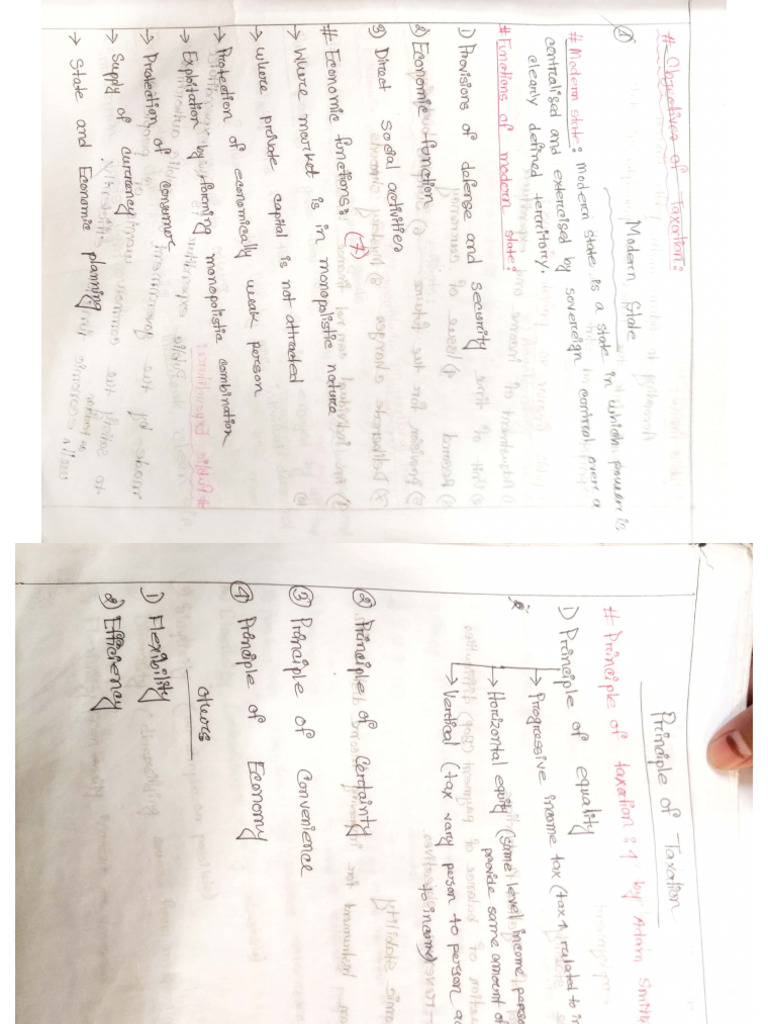 # Objectives of Taxation:
① Modern State
# Modern state: Modern state is a state in which power is
centralised and extercised by sovereign control over a
clearly defined terrritory.
# Functions of modern state:
1) Provisions of defense and security
2) Economic function
3) Direct social activities
# Economic functions: (7)
→ Where market is in monopolistic nature
→ where private capital is not attracted
→ Protection of economically weak person
→ Exploitation by forming monopolistic combination
→ Protection of consumer
→ Supply of currency
→ State and Economic planning
Principle of Taxation
# Principle of taxation: by Adam Smith
1) Principle of equality
→ Progressive income tax (tax ↑ related to
→ Horizontal equity (same level income person
provide same amount of
→ Vertical (tax vary person to person
to income)
② Principle of Certainty
③ Principle of Convenience
④ Principle of Economy
others
1) Flexibility
2) Efficiency